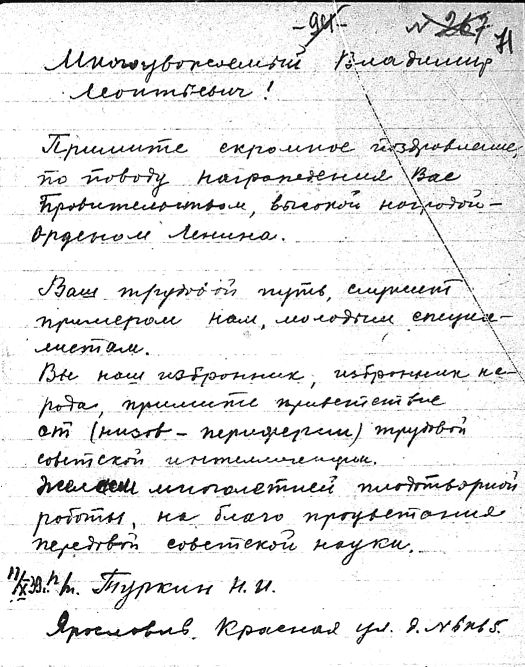 - 95 - № 267 71
Многоуважаемый Владимир
Леонтьевич!
Примите скромное поздравление,
по поводу награждения Вас
Правительством, высокой наградой -
Орденом Ленина.
Ваш трудовой путь, служит
примером нам, молодым специа-
листам.
Вы наш избранник, избранник на-
рода, примите приветствие
от (низов - периферии) трудовой
советской интеллигенции.
Желаем многолетней плодотворной
работы, на благо процветания
передовой советской науки.
Туркин Н.И.
Ярославль. Красная ул. д. № 6 кв 5.